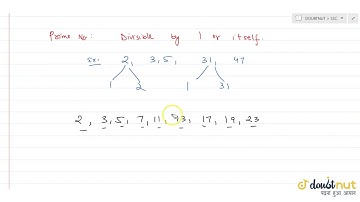 DOUBTNUT > SSC
Prime No: Divisible by 1 or itself.
Ex: 2, 3, 5, 31, 47
1 2 1 31
2, 3, 5, 7, 11, 13, 17, 19, 23
doubtnut
पढ़ना हुआ आसान